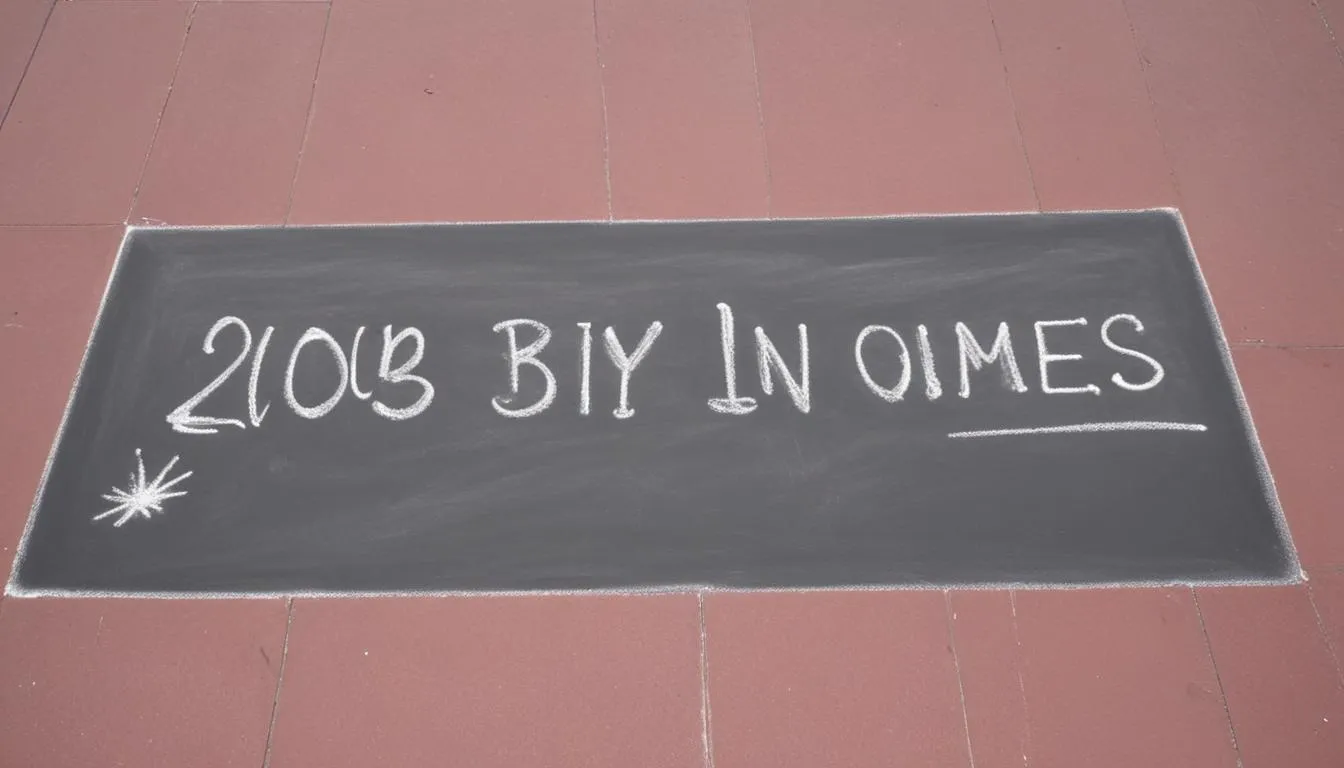 210(B BIY IN OIMES